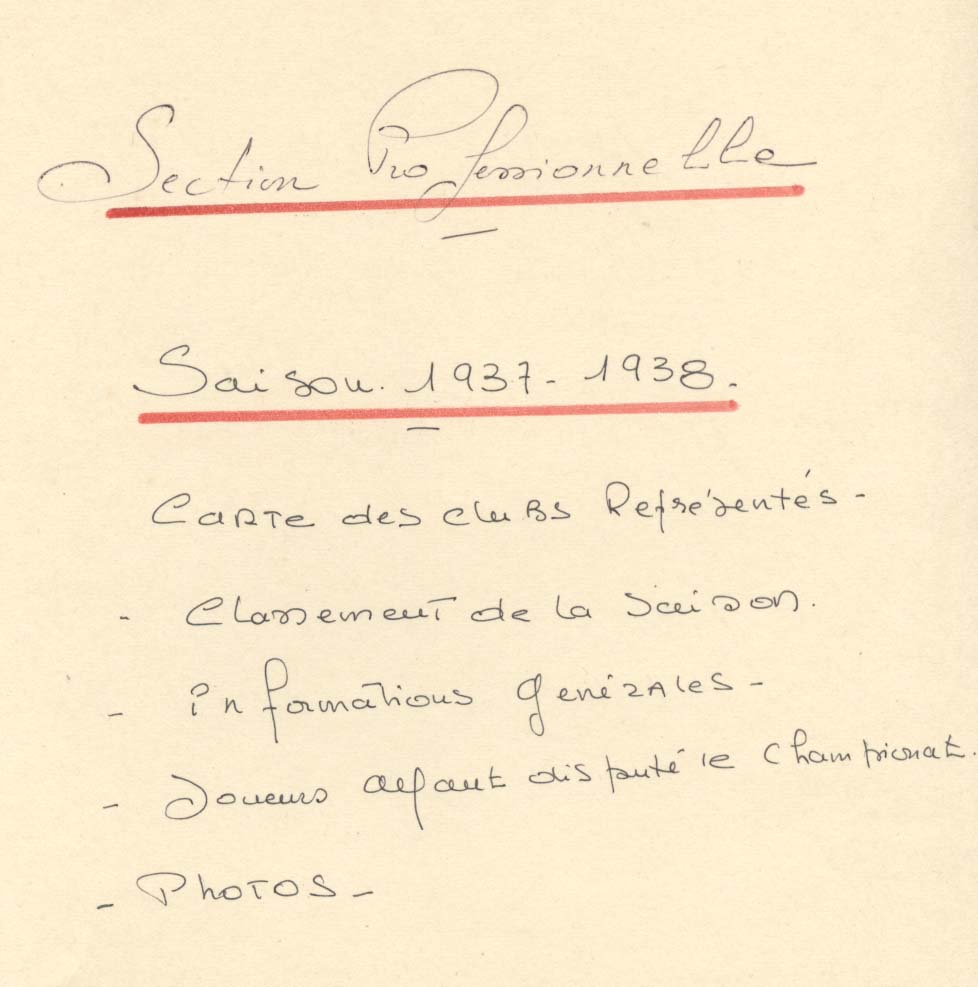 Section Professionnelle
Saison. 1937 - 1938.
Carte des clubs Représentés -
- Classement de la saison.
- informations générales -
- Joueurs ayant disputé le Championat.
- Photos -